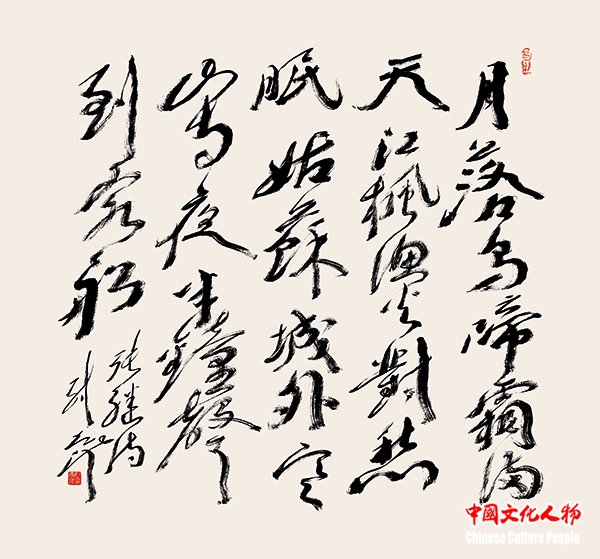 月落烏啼霜滿
天江楓漁火對愁
眠姑蘇城外寒
山寺夜半鐘聲
到客船
張繼詩
中國文化人物
Chinese Culture People